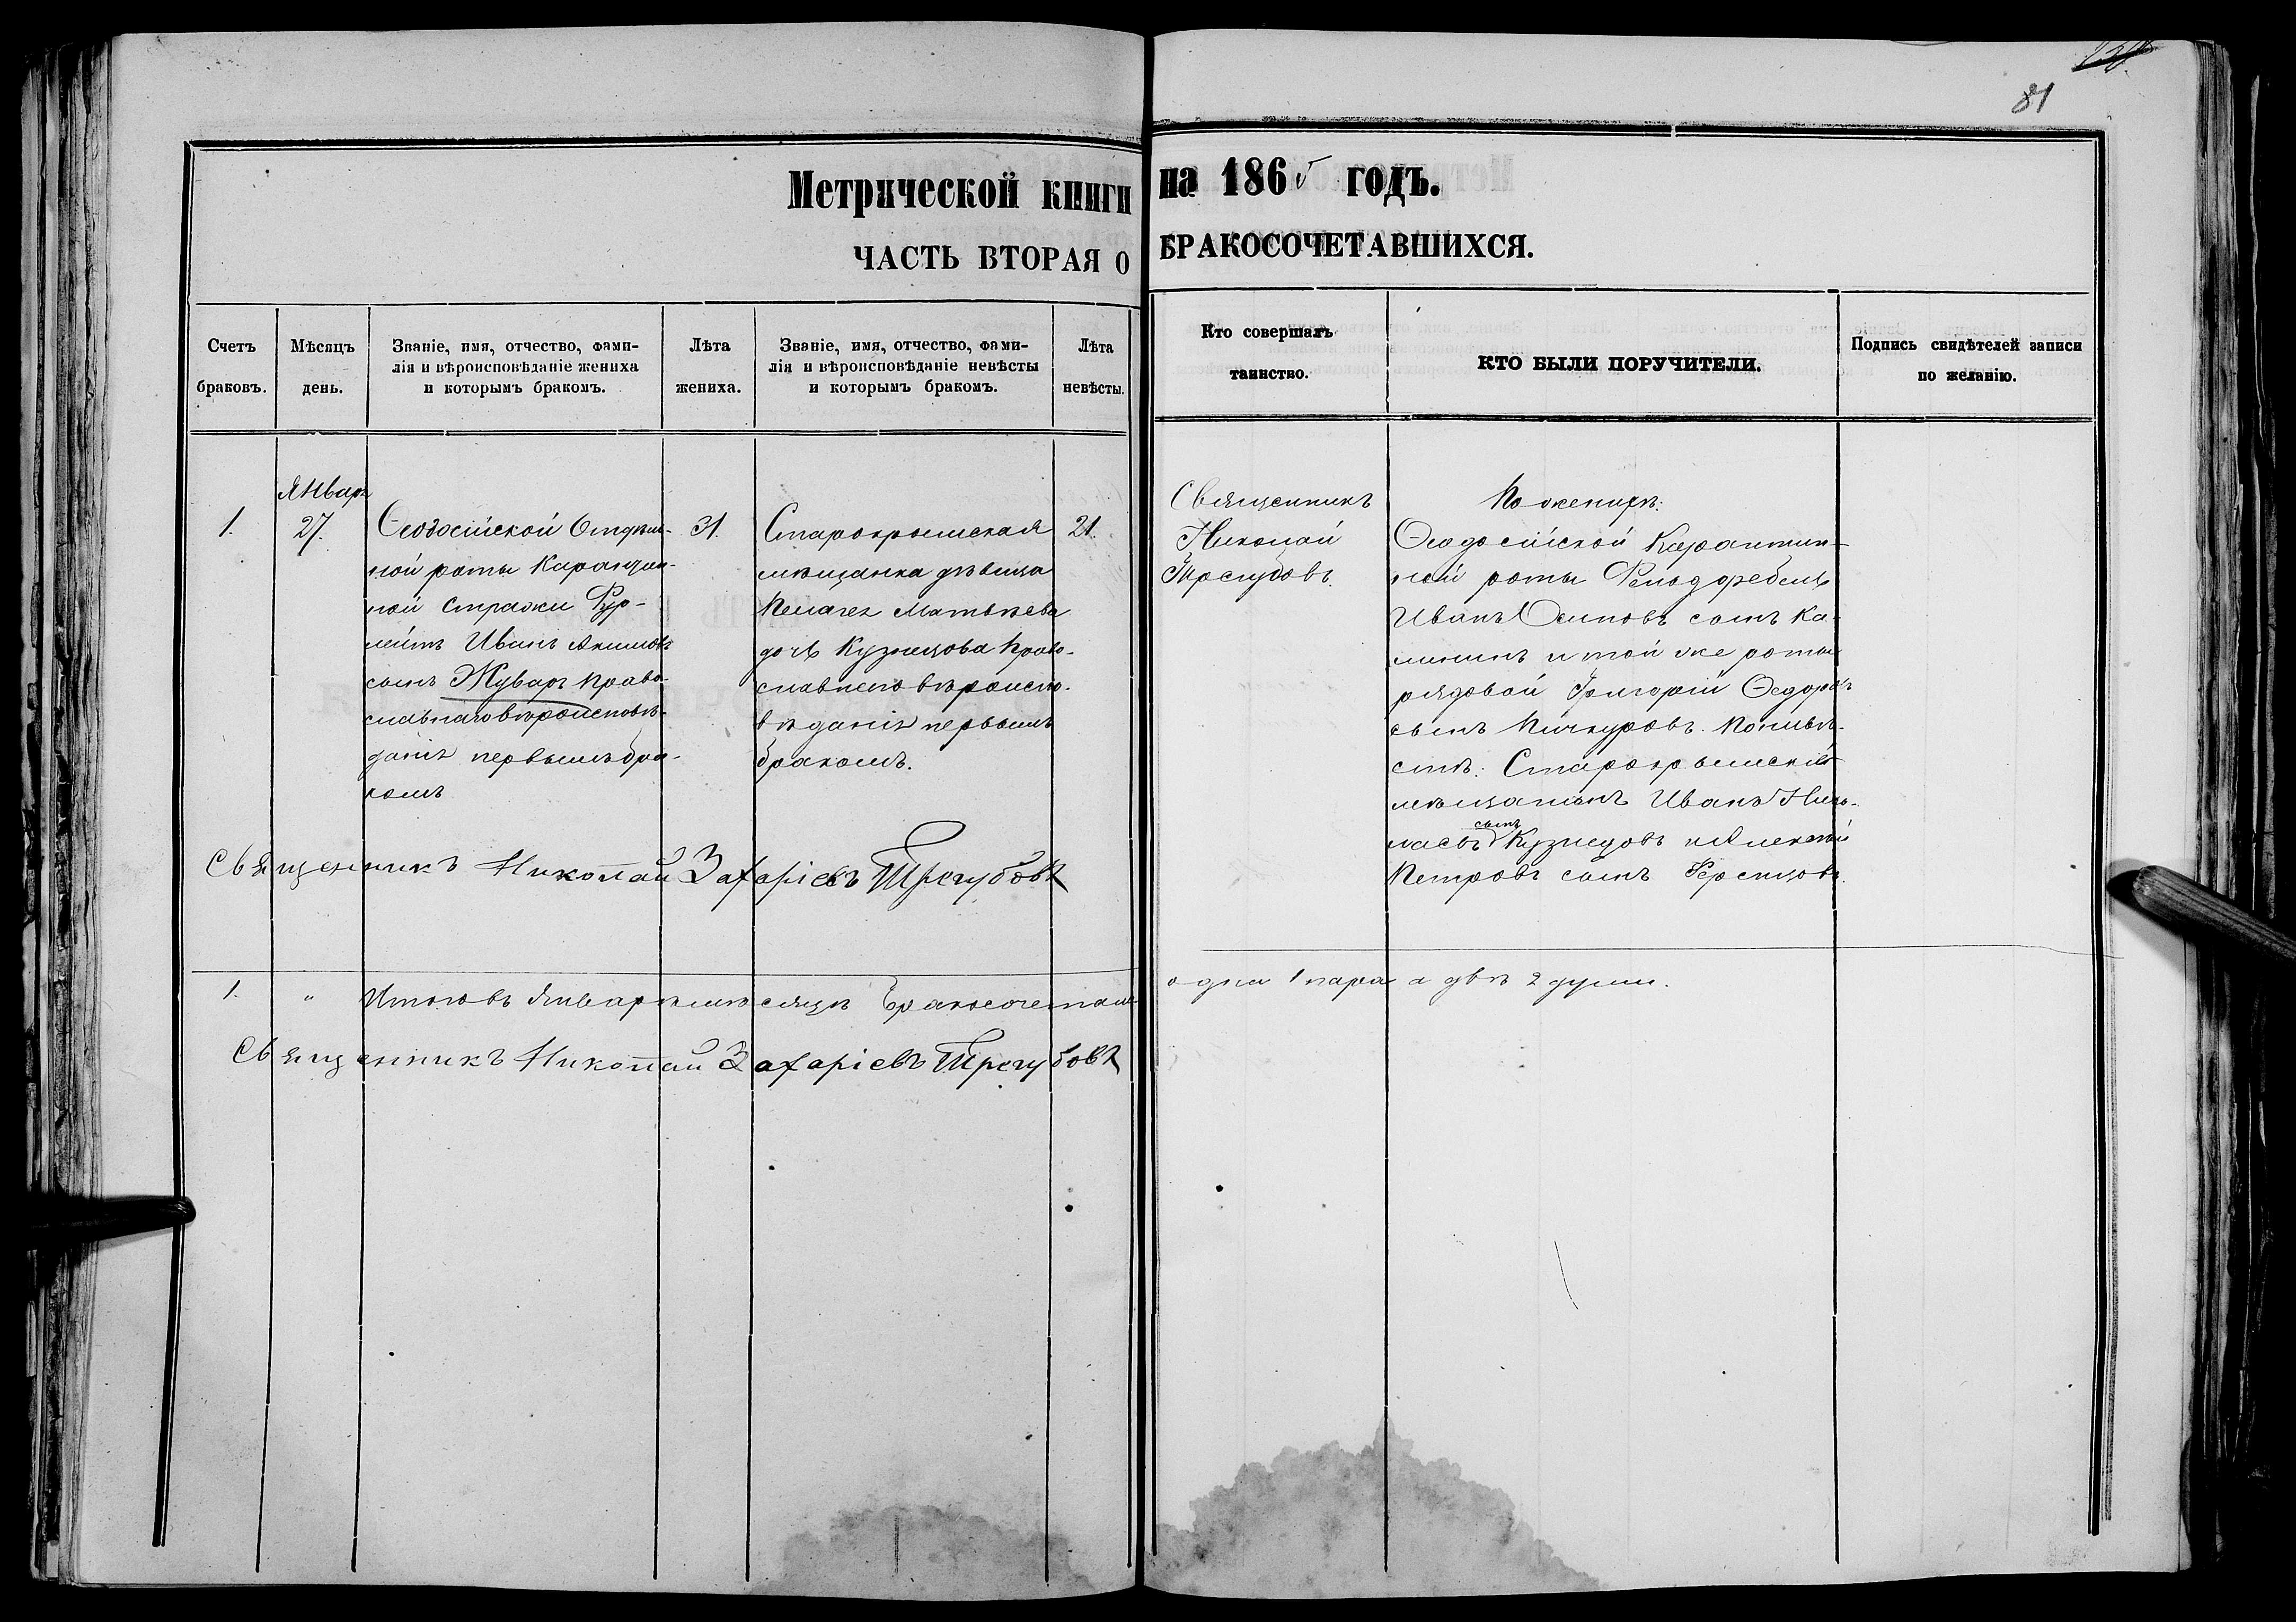 81
Метрической книги на 1865 годъ.
ЧАСТЬ ВТОРАЯ О БРАКОСОЧЕТАВШИХСЯ.
Счетъ
браковъ.
Мѣсяцъ
день.
Званіе, имя, отчество, фами-
лія и вѣроисповѣданіе жениха
и которымъ бракомъ.
Лѣта
жениха.
Званіе, имя, отчество, фами-
лія и вѣроисповѣданіе невѣсты
и которымъ бракомъ.
Лѣта
невѣсты.
Кто совершалъ
таинство.
КТО БЫЛИ ПОРУЧИТЕЛИ.
Подпись свидѣтелей записи
по желанію.
1.
Январь
27.
Ѳеодосійской Отдѣль-
ной роты Каранцин-
ной стражи Фур-
лейтъ Иванъ Акимовъ
сынъ Жуваръ право-
славнаго вѣроисповѣ-
данія первымъ бра-
комъ
31.
Старокрымская
мѣщанка дѣвица
Пелагея Матвѣева
дочь Кузнецова право-
славнаго вѣроиспо-
вѣданія первымъ
бракомъ.
21.
Священникъ
Николай
Трегубовъ.
По женихѣ:
Ѳеодосійской Карантин-
ной роты
Иванъ Осиповъ сынъ Ка-
лининъ и той же роты
рядовой Григорій Ѳедоровъ
сынъ Пичкуровъ. По невѣ-
стѣ: Старокрымскій
мѣщанинъ Иванъ
сынъ
Кузнецовъ и Алексѣй
Петровъ сынъ
Священникъ Николай Захаріевъ Трегубовъ
1. " Итого въ Январѣ мѣсяцѣ бракосочетан одна 1 пара а двѣ 2 души.
Священникъ Николай Захаріевъ Трегубовъ